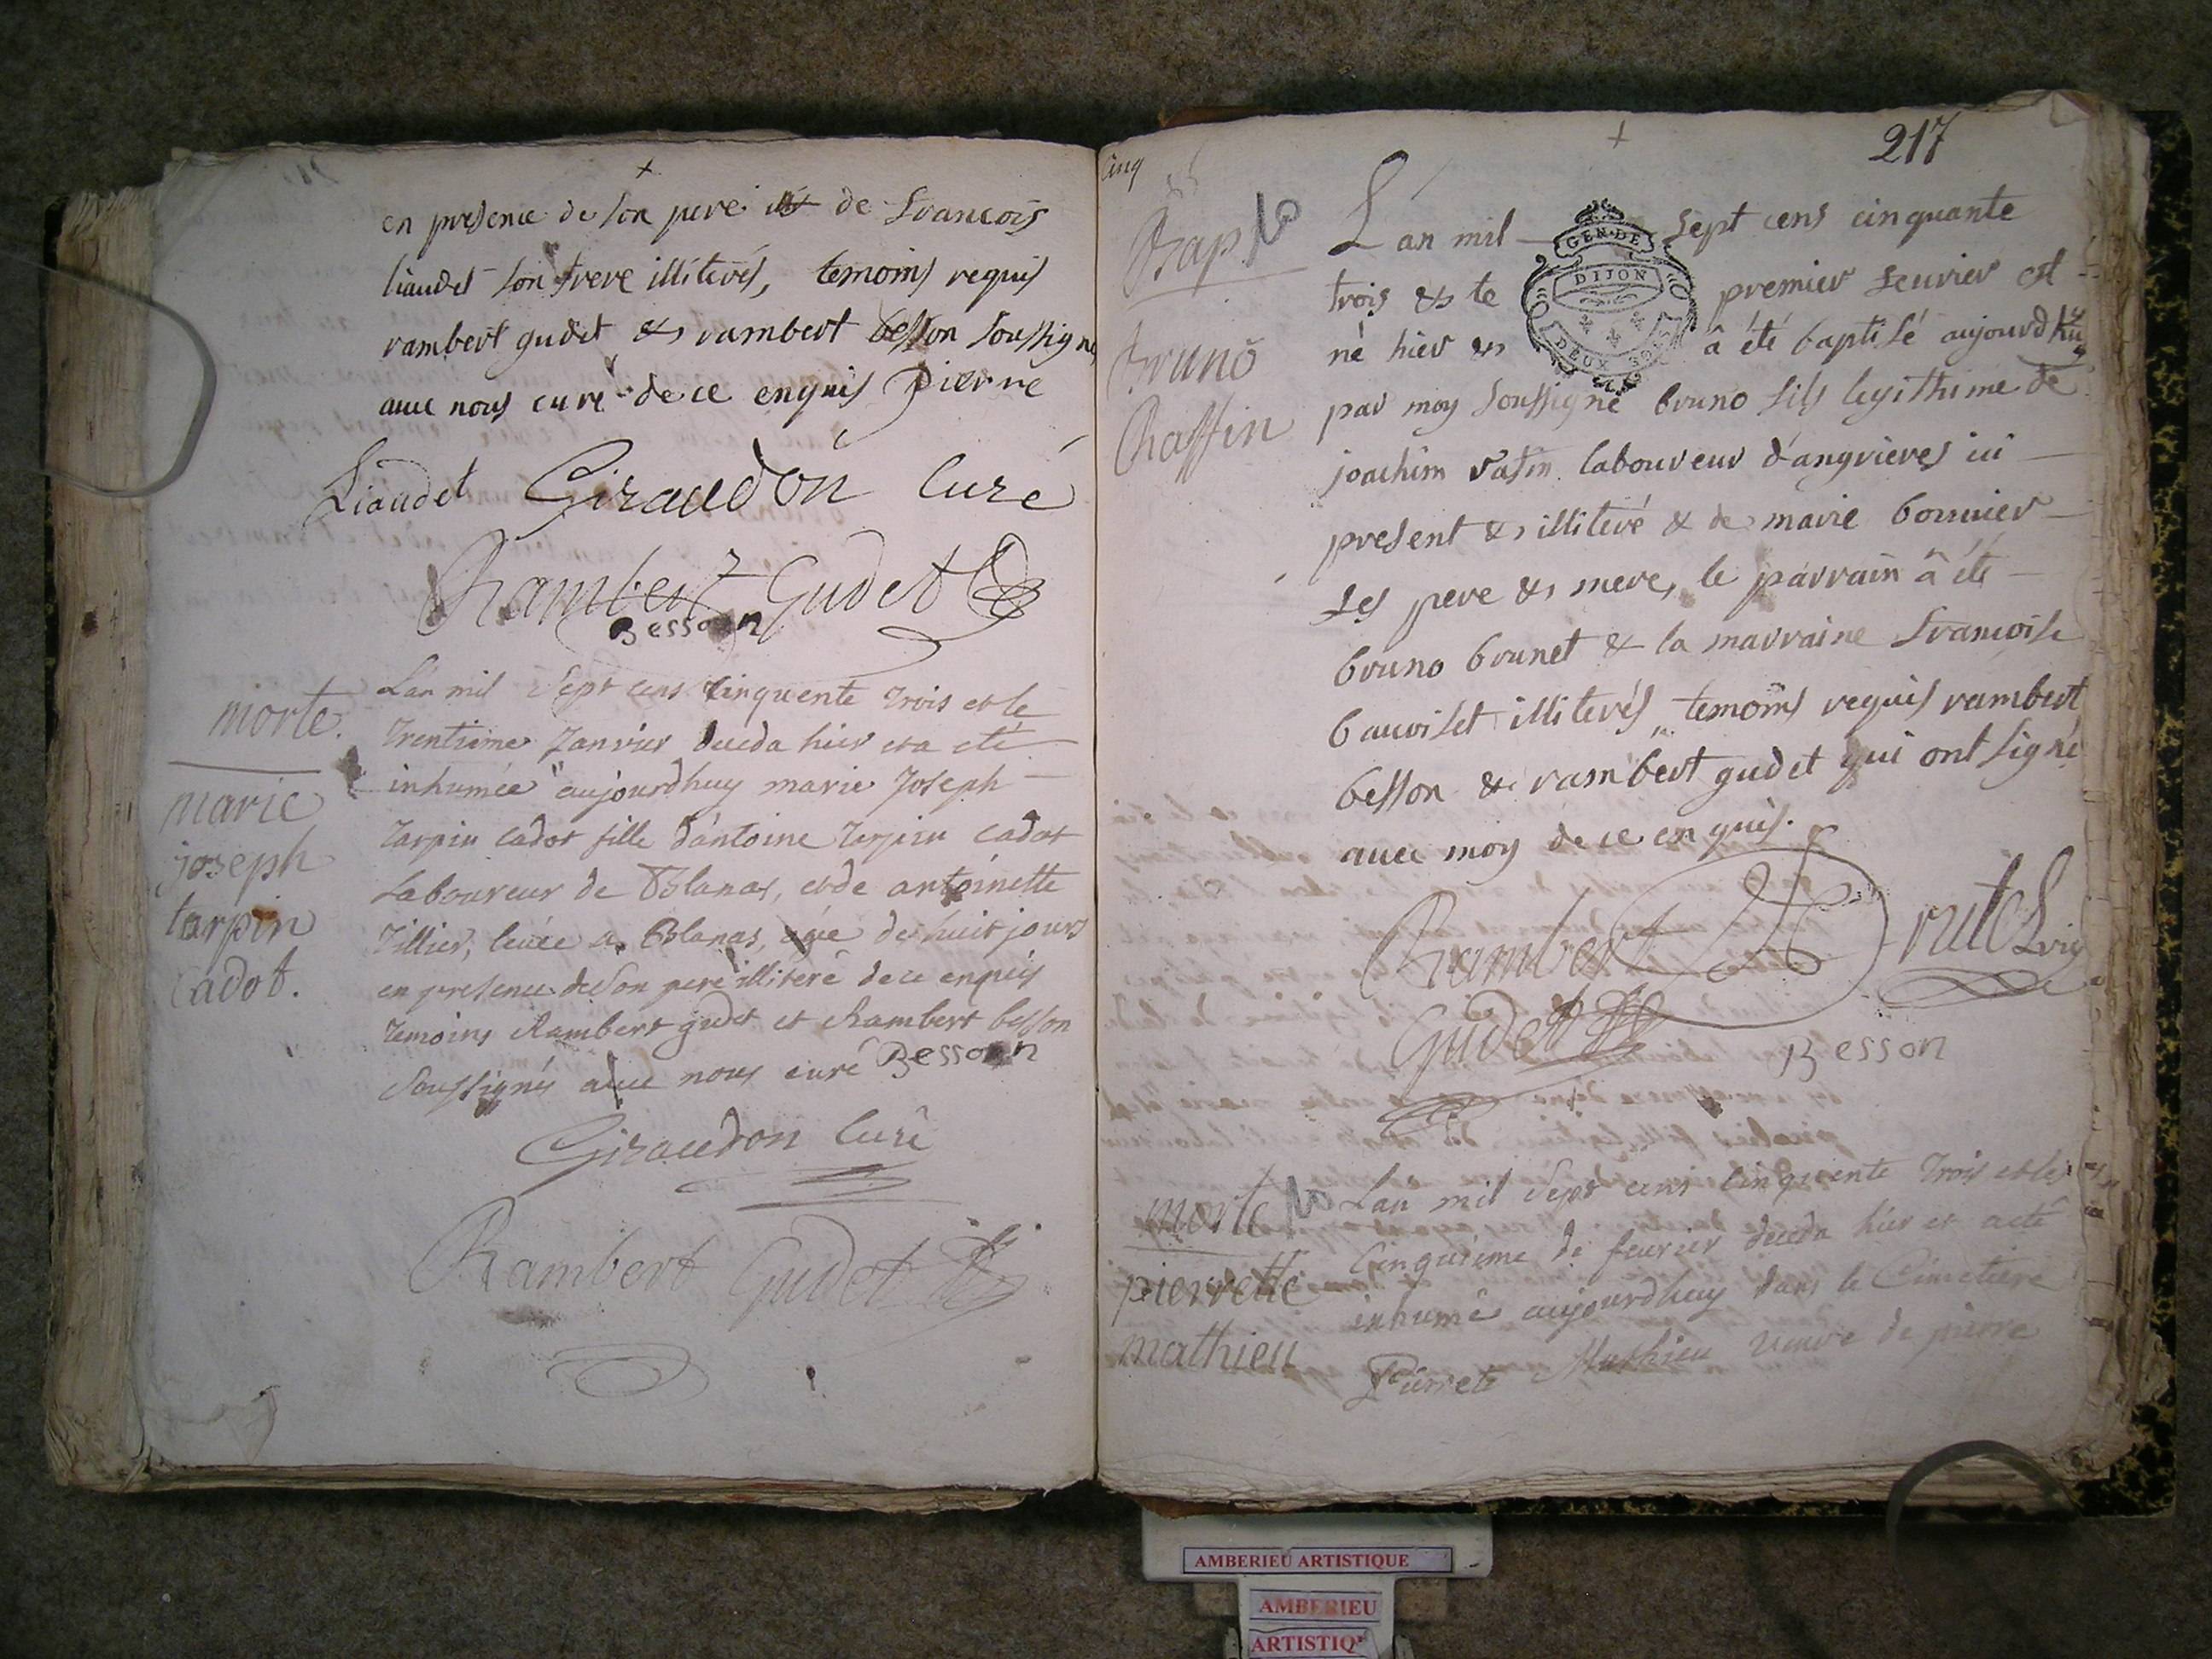 en presence de son pere et de francois
liaudet son frere illiterés, temoins requis
rambert gudet & rambert besson soussignes
avec nous curé de ce enquis pierre
Liaudet Giraudon Curé
Rambert Gudet
Bessonn
morte.
marie
joseph
tarpin
Cadot.
Lan mil Sept cens Cinquente trois et le
trentieme janvier deceda hier et a eté
inhumée aujourdhuy marie joseph
tarpin cadot fille d'antoine tarpin cadot
Laboureur de Blanas, et de antoinette
tillier, levée a Blanas, agée de huit jours
en presence de son pere illiteré de ce enquis
temoins Rambert gudet et Rambert besson
Soussignés avec nous curé Bessonn
Giraudon Curé
Rambert Gudet
Cinq
217
Bap.
bruno
Raffin
L'an mil sept cens cinquante
GEN. DE
DIJON
DEUX SOLS
trois & le premier feuvier est
né hier & â été baptisé aujourdhuy
par moy soussigné bruno fils legithime de
joachim rafin laboureur d'angrieres ici
present & illiteré & de marie bonnier
ses pere & mere, le parrain â été
bruno brunet & la marraine francoise
bauoilet illiterés, temoins requis rambert
besson & rambert gudet qui ont signé
avec moy de ce enquis.
Rambert
Gudet
Besson
morte
pierrette
mathieu
Lan mil Sept cens Cinquente trois et le
Cinquieme de feurier deceda hier et a eté
inhumé aujourdhuy dans le Cimetiere
Pierrete Mathieu veuve de pierre
AMBERIEU ARTISTIQUE
AMBERIEU
ARTISTIQ